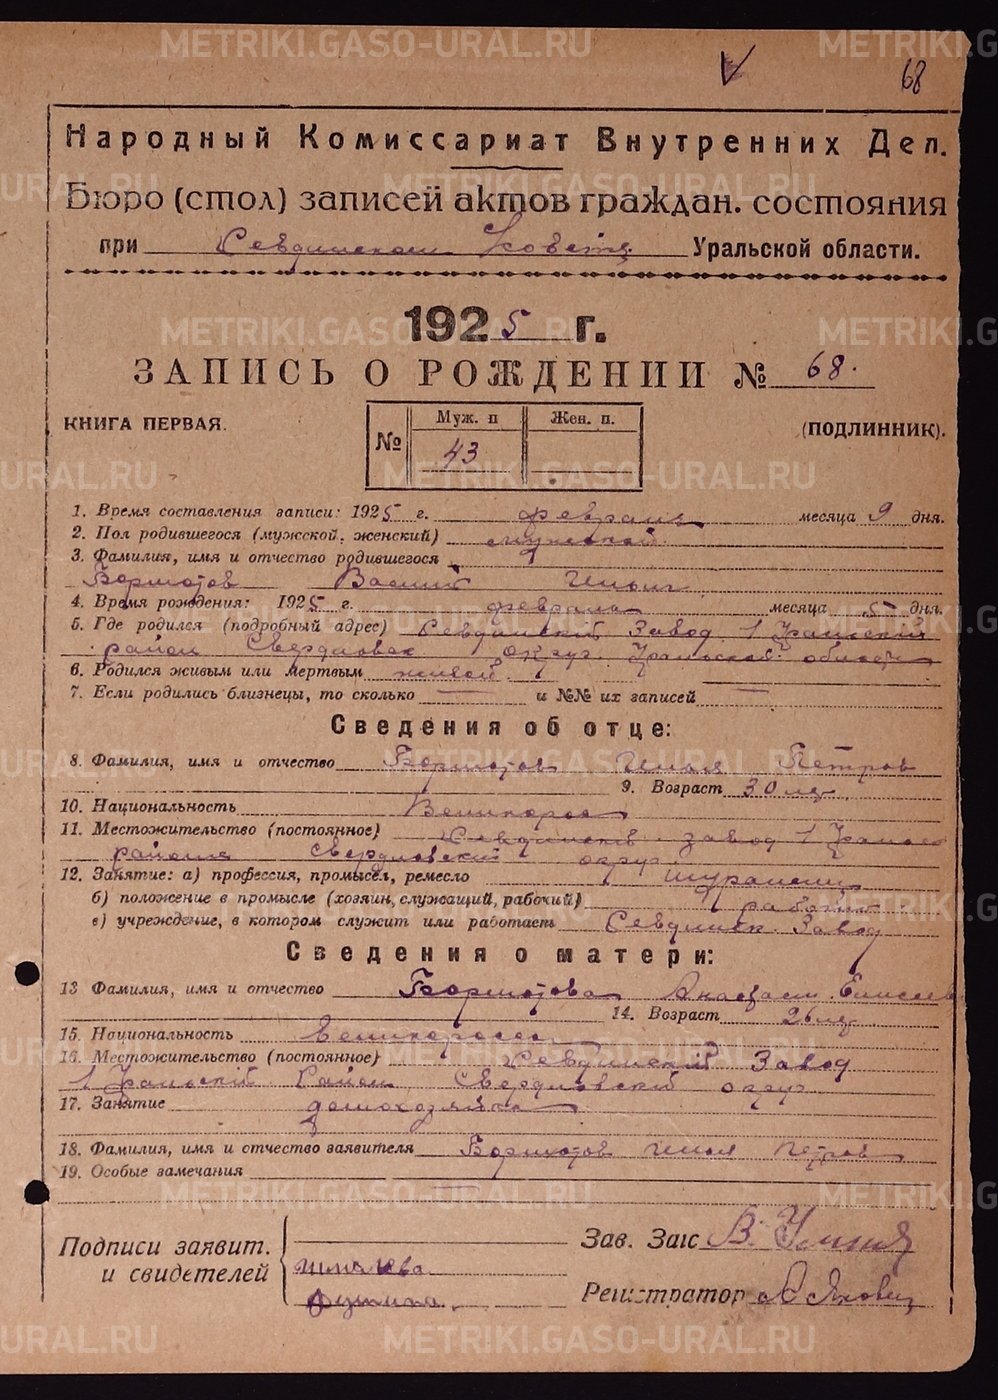 METRIKI.GASO-URAL.RU
68
Народный Комиссариат Внутренних Дел.
Бюро (стол) записей актов граждан. состояния
при Севдинском Совете Уральской области.
1925 г.
ЗАПИСЬ О РОЖДЕНИИ № 68.
КНИГА ПЕРВАЯ. (ПОДЛИННИК).
№ Муж. п Жен. п.
43
1. Время составления записи: 1925 г. февраль месяца 9 дня.
2. Пол родившегося (мужской, женский) мужской
3. Фамилия, имя и отчество родившегося
Борматов Ильич
4. Время рождения: 1925 г. февраля месяца 5 дня.
5. Где родился (подробный адрес) Севдинский Завод 1 Уральский
район Свердловск округ Уральской области
6. Родился живым или мертвым живой
7. Если родились близнецы, то сколько — и №№ их записей —
Сведения об отце:
8. Фамилия, имя и отчество Борматов Илья Петров
9. Возраст 30 лет
10. Национальность Великоросс
11. Местожительство (постоянное) завод 1 Уральск
района Свердловский округ
12. Занятие: а) профессия, промысел, ремесло
б) положение в промысле (хозяин, служащий, рабочий) рабочий
в) учреждение, в котором служит или работает Завод
Сведения о матери:
13 Фамилия, имя и отчество Борматова Анастасия Елисеев
14. Возраст 26 лет
15. Национальность великоросска
16. Местожительство (постоянное) Севдинский Завод
1 Уральский Район Свердловский округ
17. Занятие домохозяйка
18. Фамилия, имя и отчество заявителя Борматов Илья Петров
19. Особые замечания —
Подписи заявит.
и свидетелей
Зав. Загс В.
Регистратор